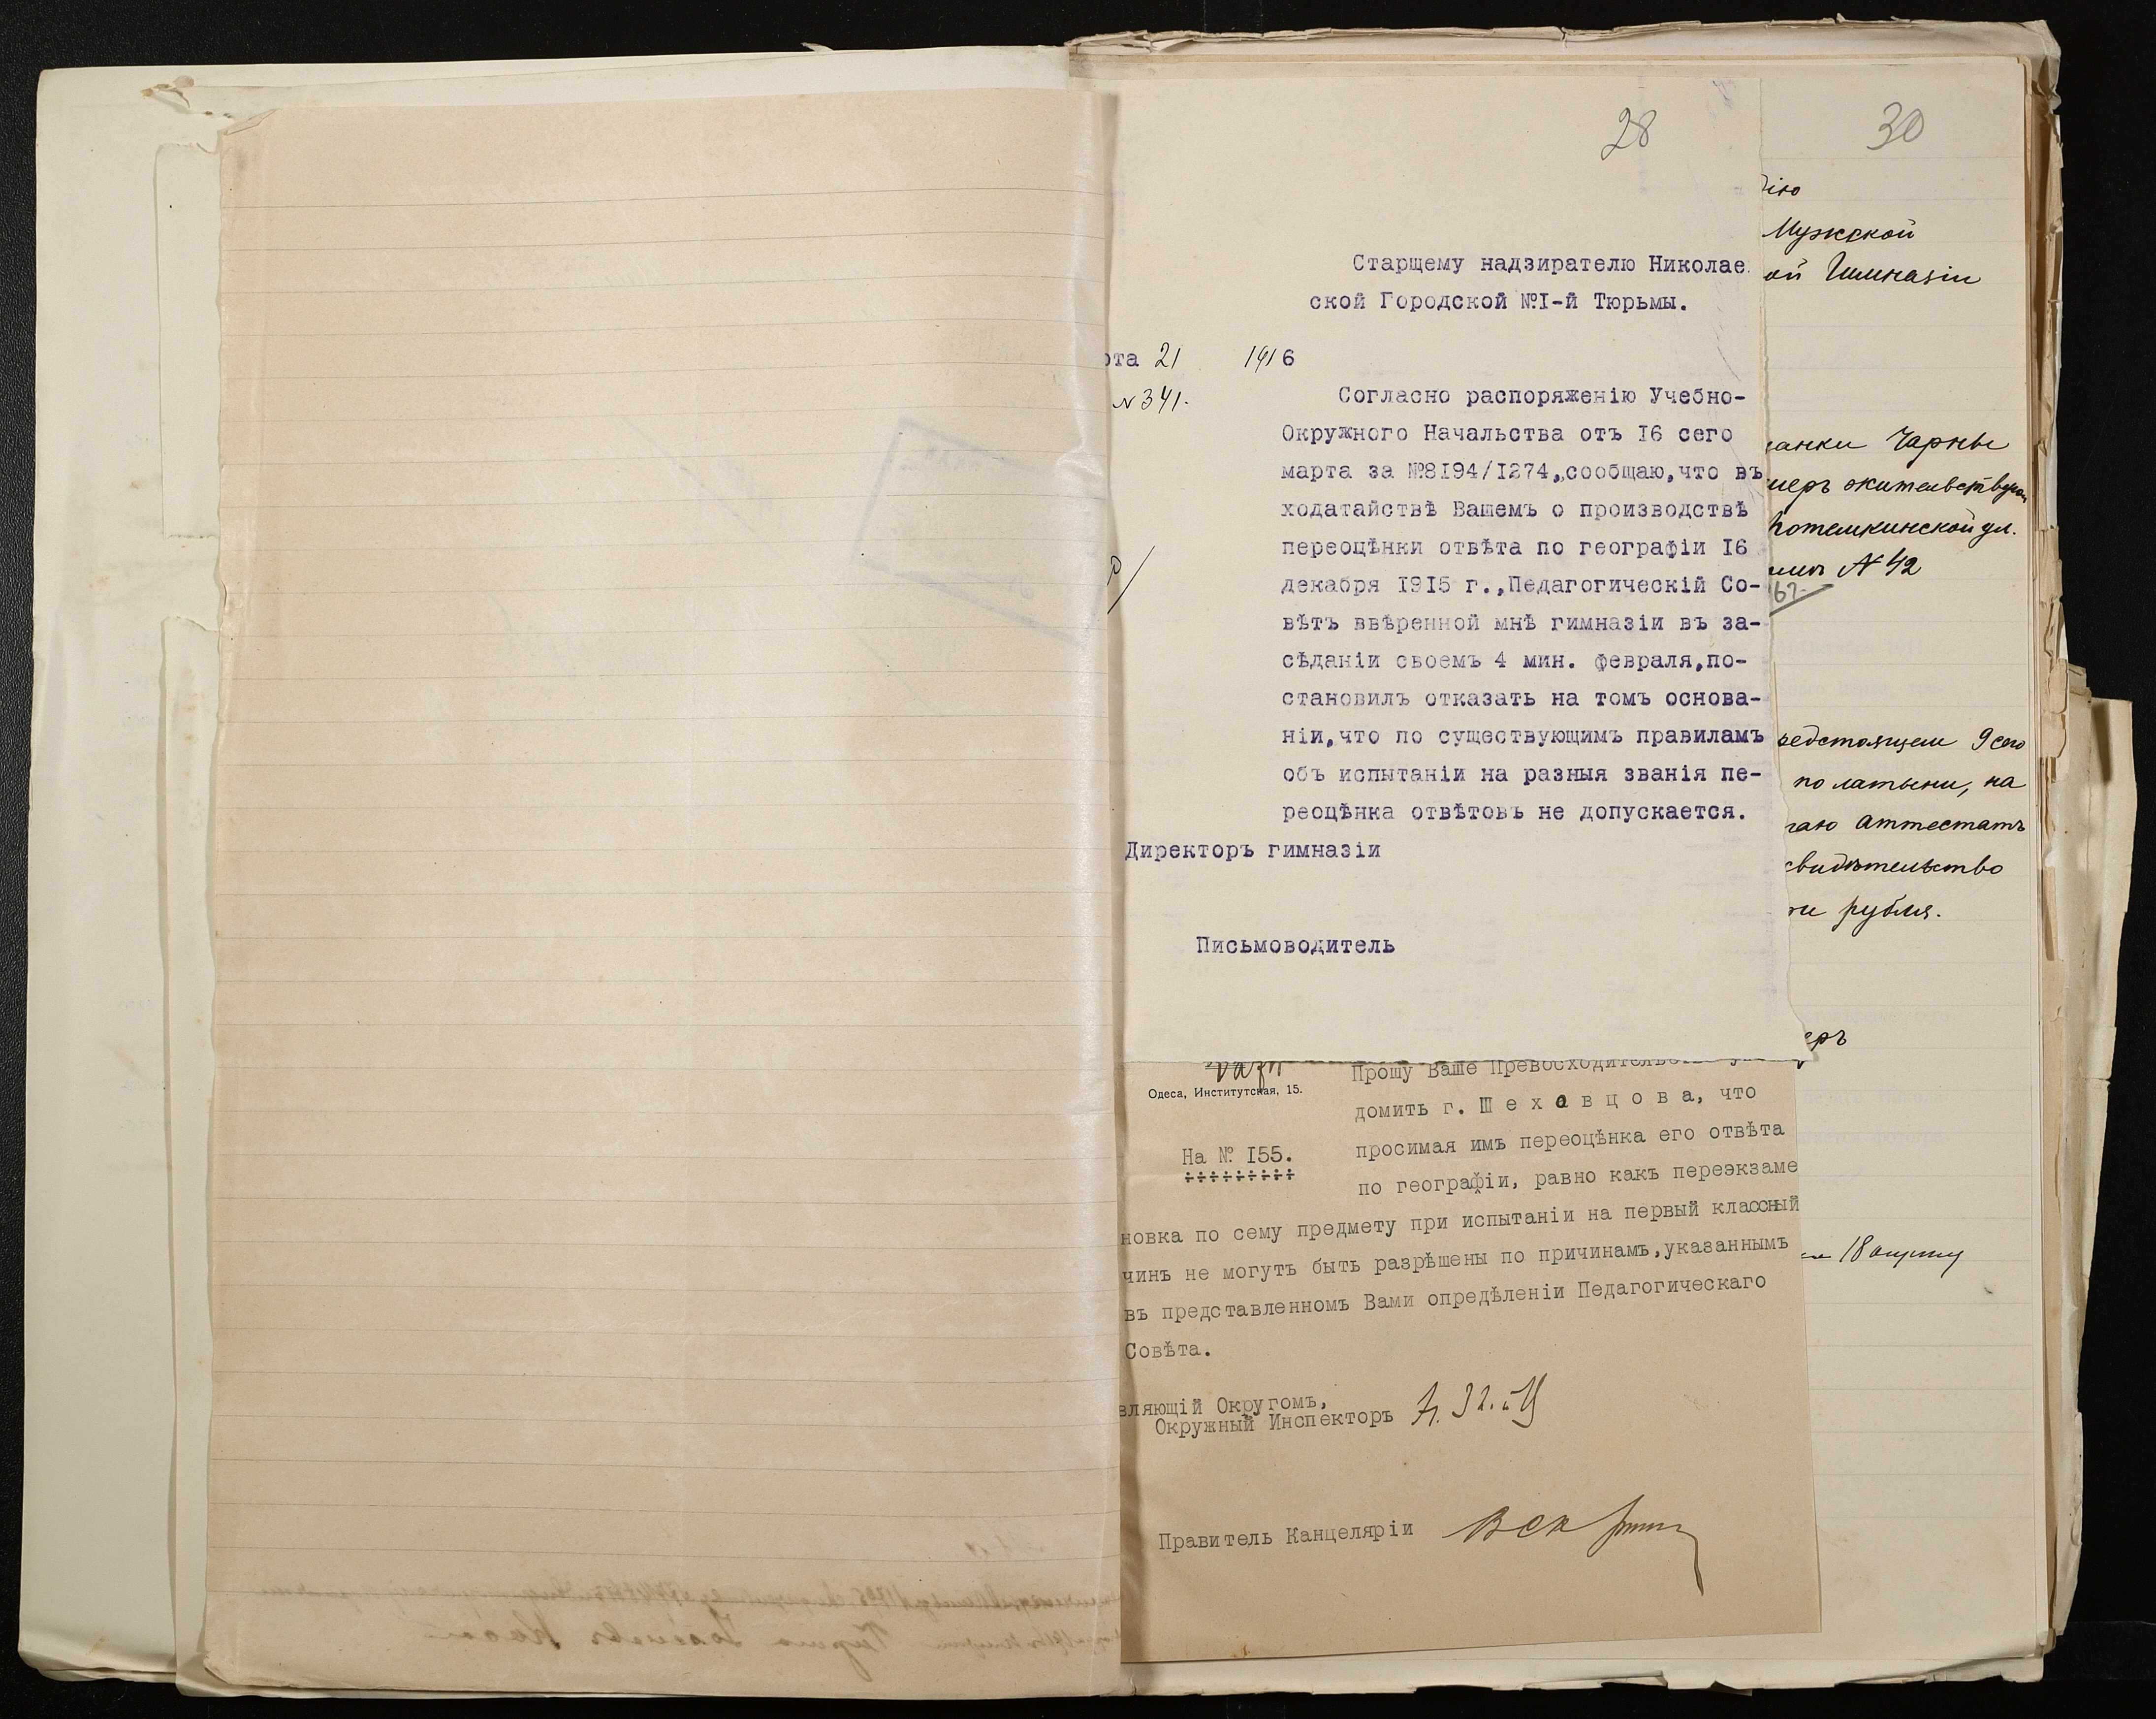 28
Старщему надзирателю Николае
ской Городской №I-й Тюрьмы.
рта 21 1916
N 341.
Согласно распоряженію Учебно-
Окружного Начальства отъ I6 сего
марта за №8I94/I274,,сообщаю,что въ
ходатайствѣ Вашемъ о производствѣ
переоцѣнки отвѣта по географіи I6
декабря I9I5 г.,Педагогическій Со-
вѣтъ ввѣренной мнѣ гимназіи въ за-
сѣданіи своемъ 4 мин. февраля,по-
становилъ отказать на томъ основа-
ніи,что по существующимъ правиламъ
объ испытаніи на разныя званія пе-
реоцѣнка отвѣтовъ не допускается.
Директоръ гимназіи
Письмоводитель
Прошу Ваше Превосходительс
Одеса, Институтская, 15.
домить г. Ш е х а в ц о в а, что
На № I55.
просимая имъ переоцѣнка его отвѣта
по географіи, равно какъ переэкзаме
новка по сему предмету при испытаніи на первый классный
чинъ не могутъ быть разрѣшены по причинамъ,указаннымъ
въ представленномъ Вами опредѣленіи Педагогическаго
Совѣта.
вляющій Округомъ,
Окружный Инспекторъ
Правитель Канцеляріи
30
ію
Мужской
ой Гимназіи
анки Чарны
меръ жительствующ
Потемкинской ул.
N 42
67
редстоящем 9 сего
по латыни, на
гаю аттестатъ
свидѣтельство
ти рубля.
еръ